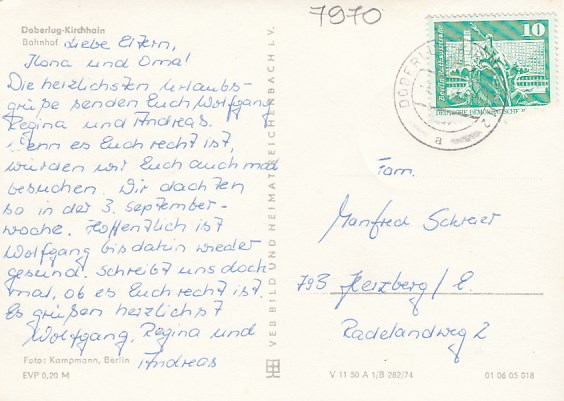 Doberlug-Kirchhain
Bahnhof
Liebe Eltern,
Ilona und Oma!
Die herzlichsten Urlaubs-
grüße senden Euch Wolfgang
Regina und Andreas.
Wenn es Euch recht ist,
würden wir Euch auch mal
besuchen. Wir dachten
so in der 3. September-
woche. Hoffentlich ist
Wolfgang bis dahin wieder
gesund. Schreibt uns doch
mal, ob es Euch recht ist.
Es grüßen herzlichst
Wolfgang, Regina und
Andreas
Foto: Kampmann, Berlin
EVP 0,20 M
VEB BILD UND HEIMAT REICHENBACH I. V.
7970
10
Berlin, Rathausstraße
DEUTSCHE DEMOKRATISCHE
DOBERLUG
a
Fam.
Manfred Schreier
793 Herzberg/E.
Radelandweg 2
V 11 50 A 1/B 282/74
01 06 05 018